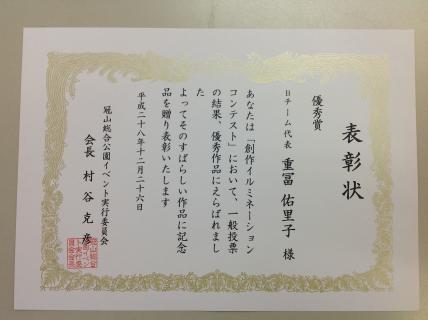 表彰状
優秀賞
Hチーム代表 重冨 佑里子 様
あなたは「創作イルミネーション
コンテスト」において、一般投票
の結果、優秀作品にえらばれまし
た
よってそのすばらしい作品に記念
品を贈り表彰いたします
平成二十八年十二月二十六日
冠山総合公園イベント実行委員会
会長 村谷 克彦